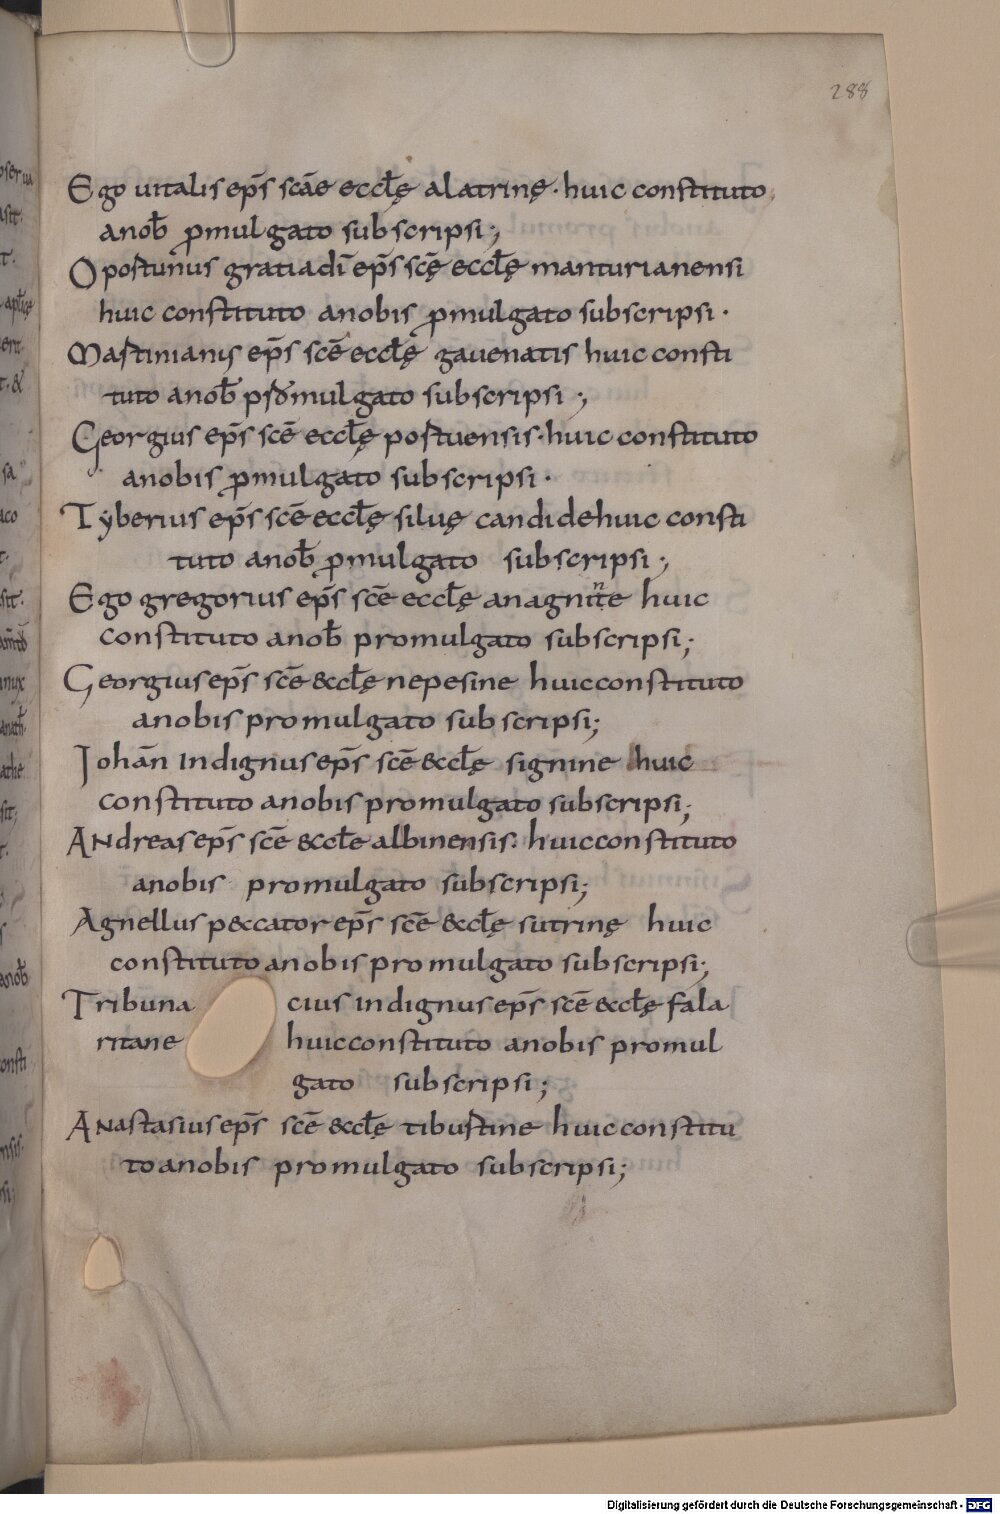 288
Ego uitalis ep̄s scāe eccl̄ę alatrinę · huic constituto
anob̄ ꝓmulgato subscripsi;
Oportunus gratia dī ep̄s scę̄ eccl̄ę manturianensi
huic constituto anobis ꝓmulgato subscripsi ·
Martinianis ep̄s scē eccl̄ę gauenatis huic consti
tuto anob̄ mulgato subscripsi ;
Georgius ep̄s scē eccl̄ę portuensis · huic constituto
anobis ꝓmulgato subscripsi ·
Tyberius ep̄s scē eccl̄ę siluę candide huic consti
tuto anob̄ ꝓmulgato subscripsi ;
Ego gregorius ep̄s scē eccl̄ę anagnite huic
constituto anob̄ promulgato subscripsi;
Georgius ep̄s scē &ccl̄ę nepesine huic constituto
anobis promulgato subscripsi;
Johan̄ indignus ep̄s scē &ccl̄ę signine huic
constituto anobis promulgato subscripsi;
Andreas ep̄s scē &ccl̄e albinensis. huic constituto
anobis promulgato subscripsi;
Agnellus p&ccator ep̄s scē &ccl̄ę sutrinę huic
constituto anobis promulgato subscripsi;
Tribuna cius indignus ep̄s scē &ccl̄ę fala
ritane huic constituto anobis promul
gato subscripsi;
Anastasius ep̄s scē &ccl̄ę tiburtine huic constitu
to anobis promulgato subscripsi;
Digitalisierung gefördert durch die Deutsche Forschungsgemeinschaft - DFG